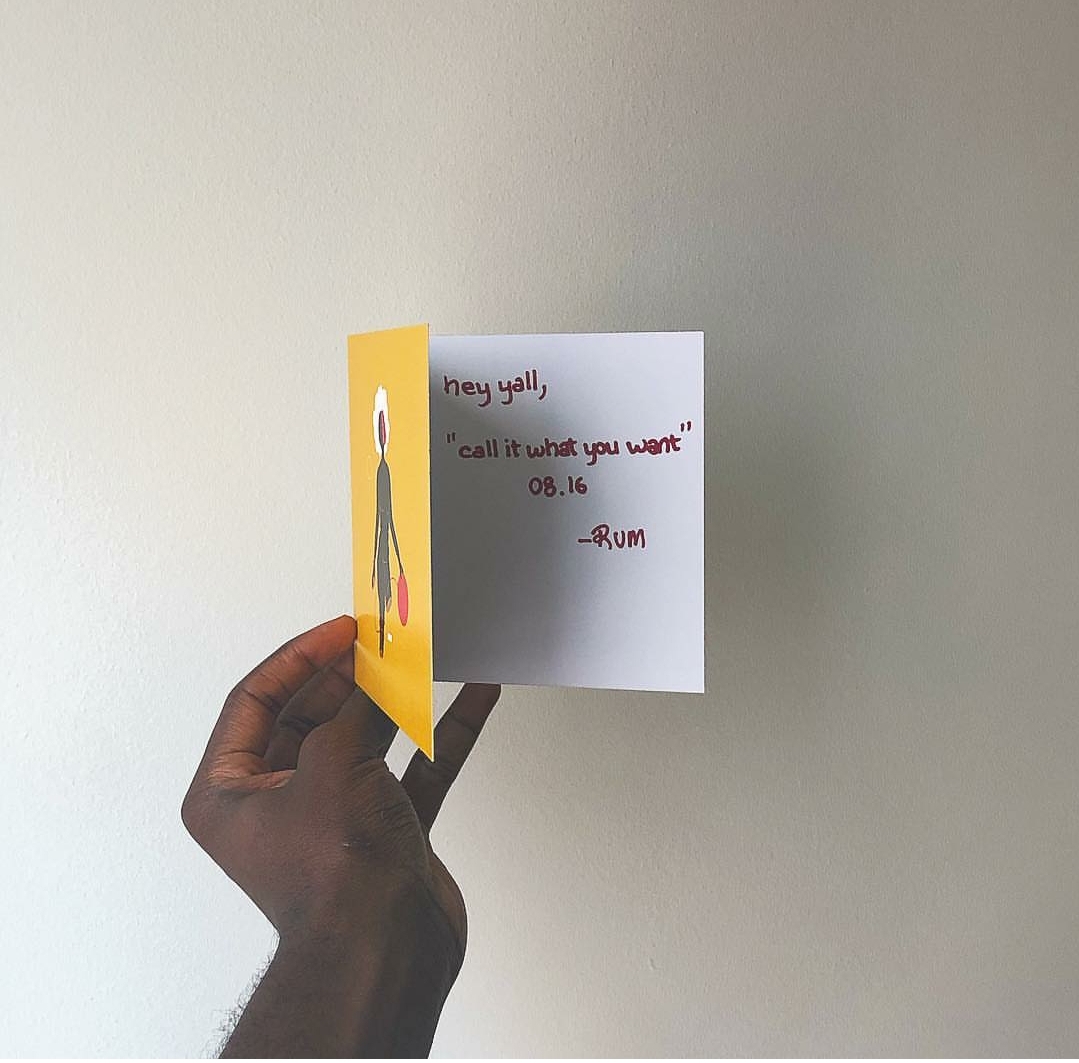 hey yall,
"call it what you want"
08.16
-RUM